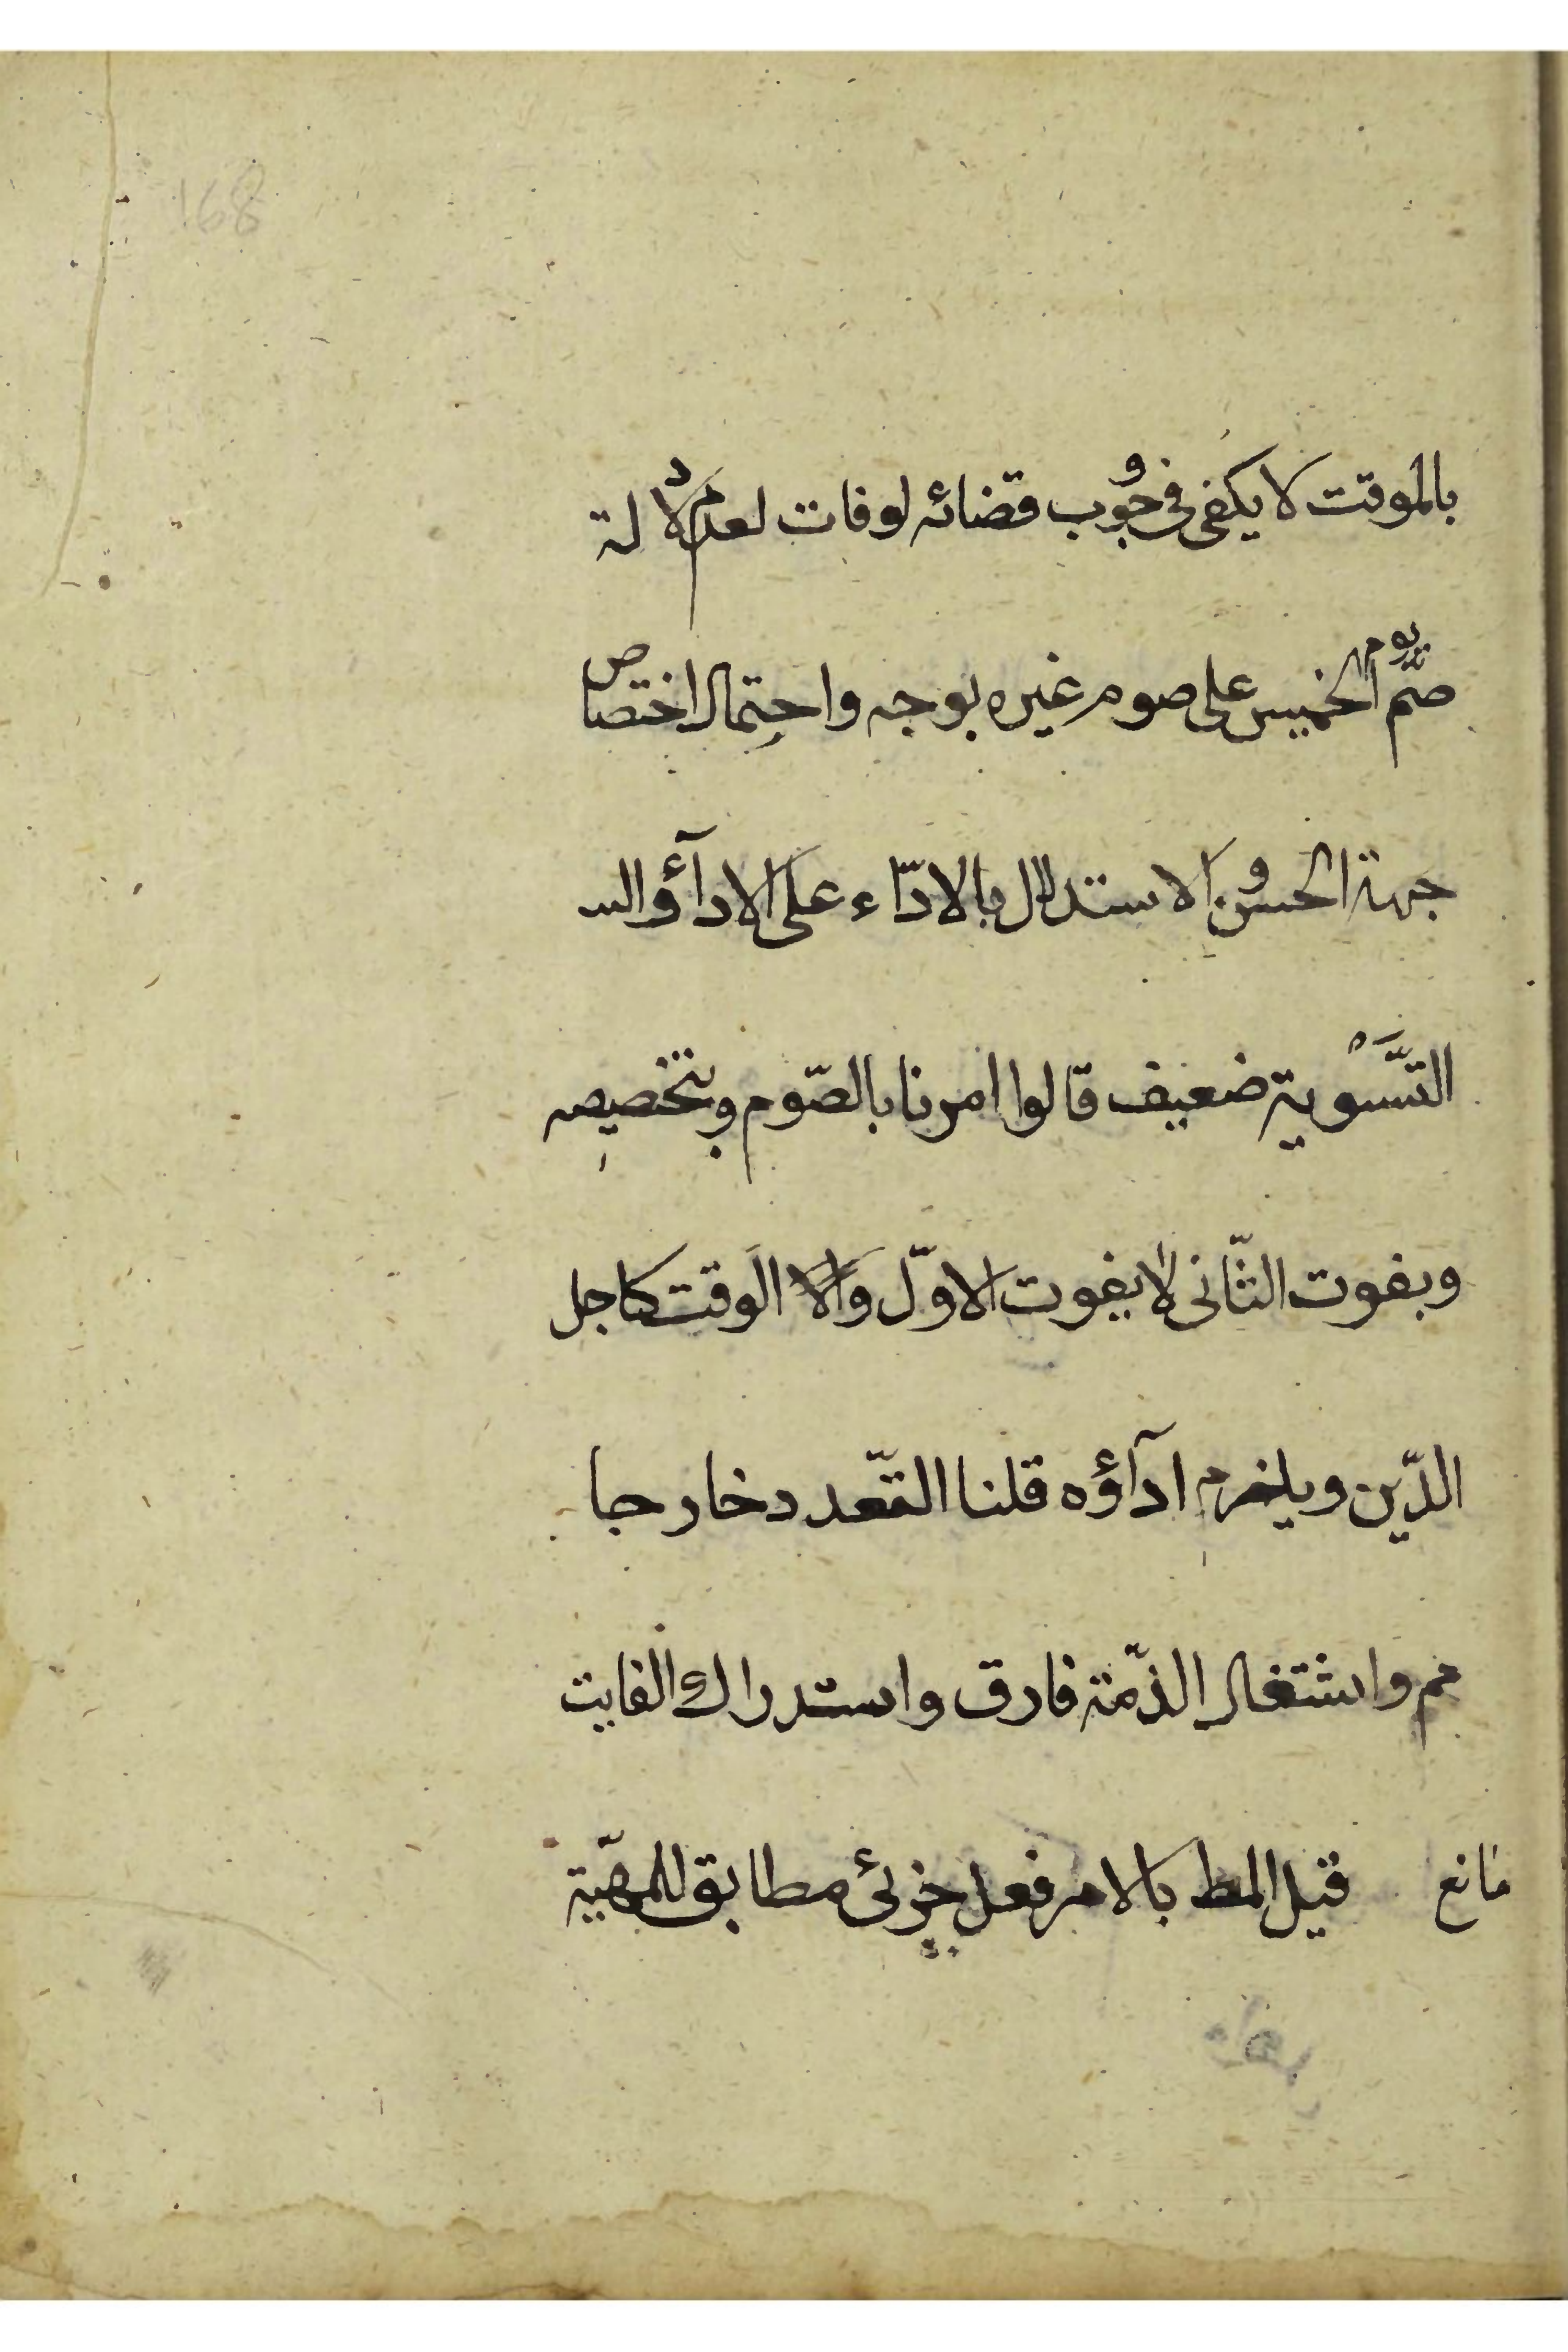 168
بالموقت لا يكفى فى وجوب قضائه لو فات لعدم دلالة
صم يوم الخميس على صوم غيره بوجه واحتمال اختصاص
جهة الحسن و الاستدلال بالادّاء على الادآؤ والسـ
التَّسْوية ضعيف قالوا امرنا بالصّوم وبتخصيصه
وبفوت الثّانى لا يفوت الاوّل والا الوقت كاجل
الدّين ويلزم ادآؤه قلنا التّعدد خارجا
مم واشتغال الذّمة فارق واستدراك الفايت
مانع قيل المط بالامر فعل جزئى مطابق للمهيّة